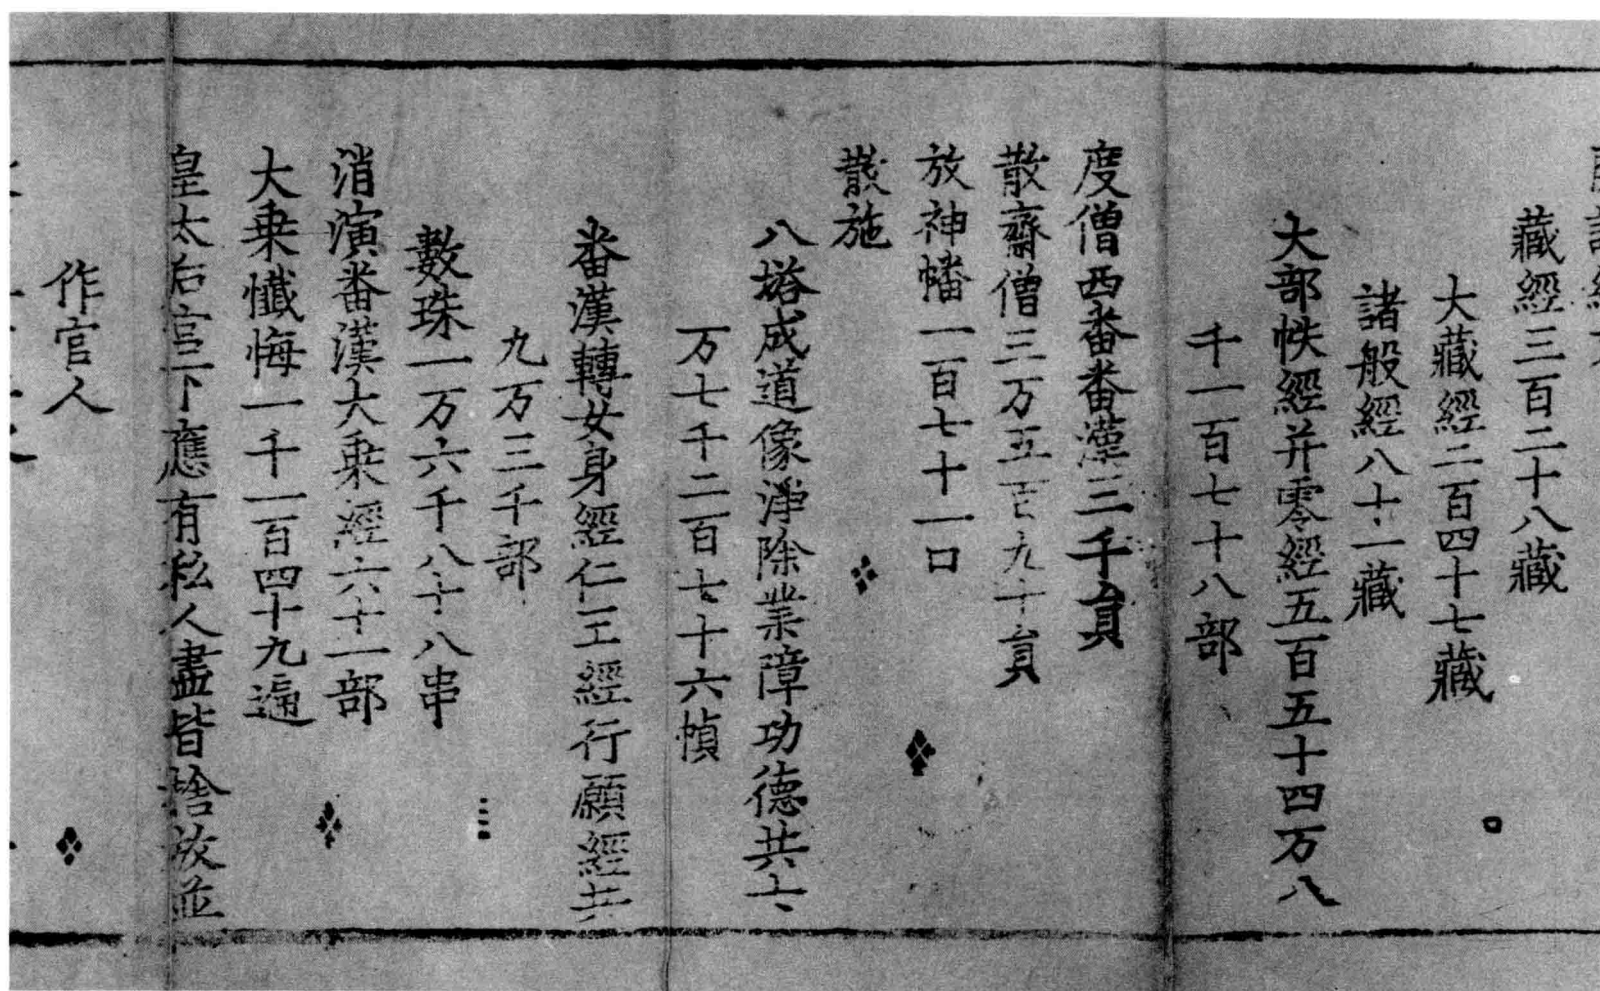 藏經三百二十八藏
大藏經二百四十七藏
諸般經八十一藏
大部帙經并零經五百五十四万八
千一百七十八部
度僧西番番漢三千員
散齋僧三万五百九十員
放神幡一百七十一口
散施
八塔成道像淨除業障功德共七
万七千二百七十六幀
番漢轉女身經仁王經行願經共
九万三千部
數珠一万六千八十八串
消演番漢大乘經六十一部
大乘懺悔一千一百四十九遍
皇太后宫下應有私人盡皆捨放並
作官人